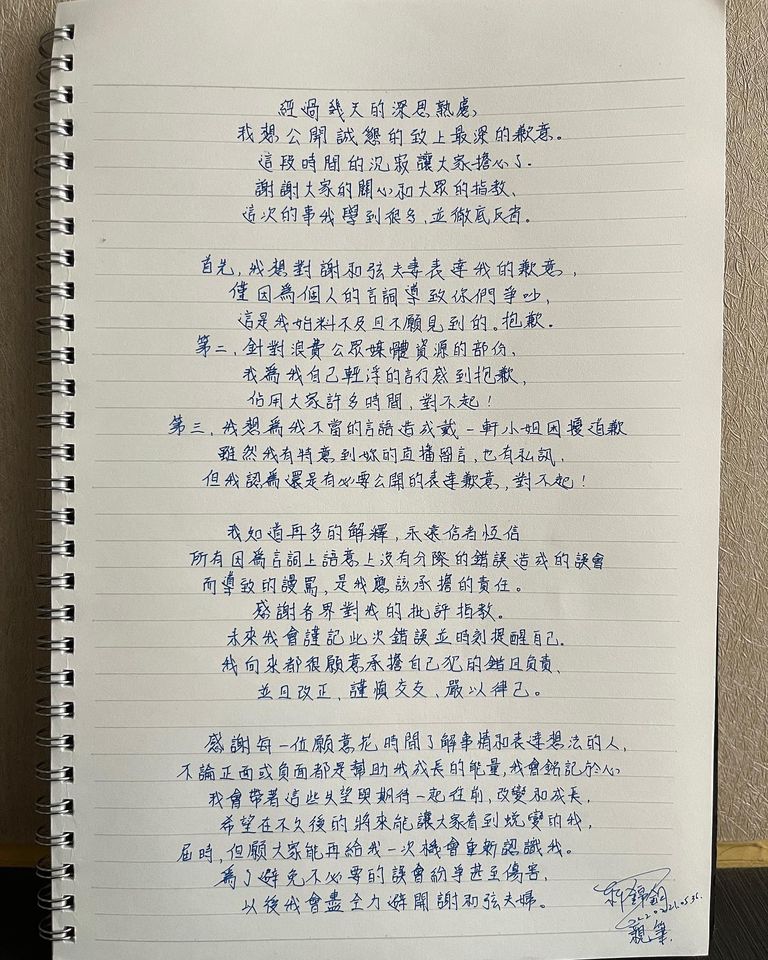 經過幾天的深思熟慮、
我想公開誠懇的致上最深的歉意。
這段時間的沉寂讓大家擔心了.
謝謝大家的關心和大眾的指教、
這次的事我學到很多、並徹底反省。
首先,我想對謝和弦夫妻表達我的歉意,
僅因為個人的言詞導致你們爭吵,
這是我始料不及且不願見到的。抱歉.
第二、針對浪費公眾媒體資源的部份、
我為我自己輕浮的言行感到抱歉,
佔用大家許多時間,對不起!
第三、我想為我不當的言語造成戴-軒小姐困擾道歉
雖然我有特意到妳的直播留言,也有私訊、
但我認為還是有必要公開的表達歉意,對不起!
我知道再多的解釋,永遠信者恆信
所有因為言詞上語意上沒有分際的錯誤造成的誤會
而導致的謾罵,是我應該承擔的責任。
感謝各界對我的批評指教.
未來我會謹記此次錯誤並時刻提醒自己.
我向來都很願意承擔自己犯的錯且負責、
並且改正、謹慎交友、嚴以律己。
感謝每一位願意花時間了解事情和表達想法的人,
不論正面或負面都是幫助我成長的能量,我會銘記於心
我會帶著這些失望與期待一起往前,改變和成長,
希望在不久後的將來能讓大家看到蛻變的我,
屆時,但願大家能再給我一次機會重新認識我。
為了避免不必要的誤會紛爭甚至傷害、
以後我會盡全力避開謝和弦夫婦。
親筆.